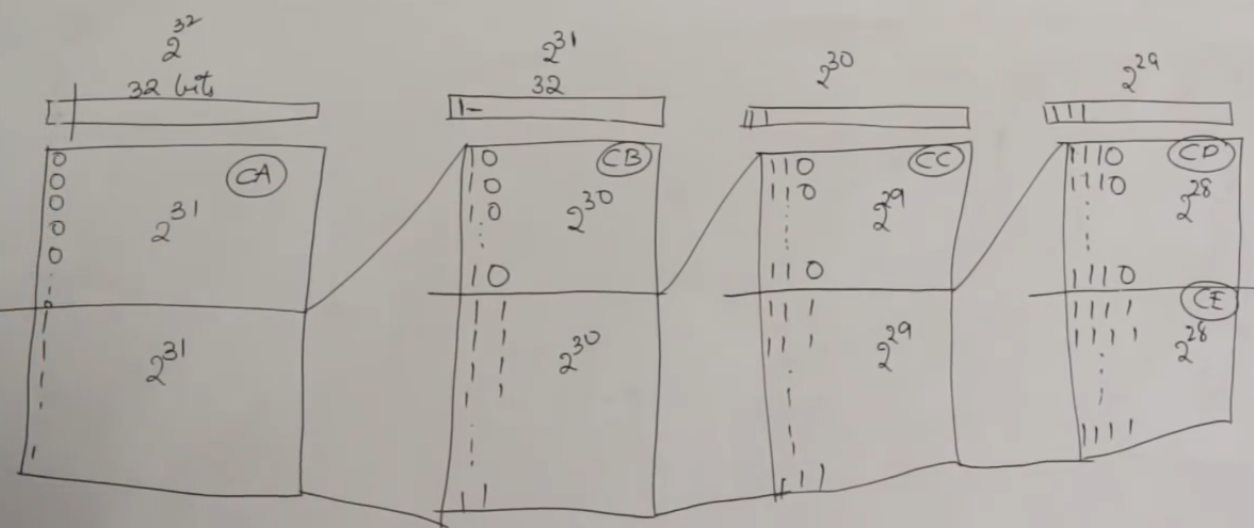 2^32
32 bits
0
0
0
0
0
CA
2^31
0
1
2^31
1
2^31
32
1-
10
10
10
10
CB
2^30
11
11
11
11
2^30
2^30
11
110
110
110
CC
2^29
111
111
111
2^29
2^29
111
1110
1110
1110
CD
2^28
1111
1111
1111
CE
2^28